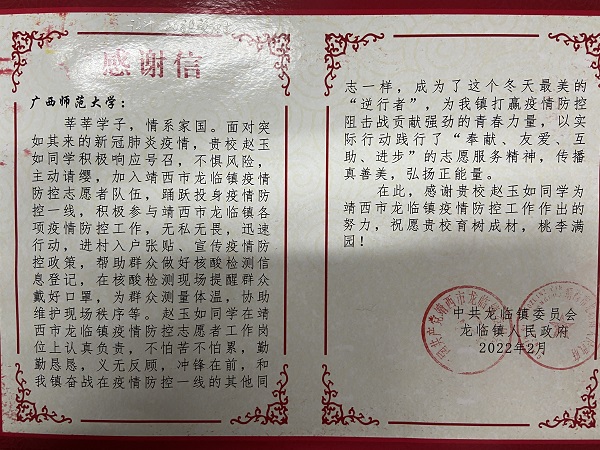 感谢信
广西师范大学：
莘莘学子，情系家国。面对突
如其来的新冠肺炎疫情，贵校赵玉
如同学积极响应号召，不惧风险，
主动请缨，加入靖西市龙临镇疫情
防控志愿者队伍，踊跃投身疫情防
控一线，积极参与靖西市龙临镇各
项疫情防控工作，无私无畏，迅速
行动，进村入户张贴、宣传疫情防
控政策，帮助群众做好核酸检测信
息登记，在核酸检测现场提醒群众
戴好口罩，为群众测量体温，协助
维护现场秩序等。赵玉如同学在靖
西市龙临镇疫情防控志愿者工作岗
位上认真负责，不怕苦不怕累，勤
勤恳恳，义无反顾，冲锋在前，和
我镇奋战在疫情防控一线的其他同
志一样，成为了这个冬天最美的
“逆行者”，为我镇打赢疫情防控
阻击战贡献强劲的青春力量，以实
际行动践行了“奉献、友爱、互
助、进步”的志愿服务精神，传播
真善美，弘扬正能量。
在此，感谢贵校赵玉如同学为
靖西市龙临镇疫情防控工作作出的
努力，祝愿贵校育树成材，桃李满
园！
中共龙临镇委员会
龙临镇人民政府
2022年2月